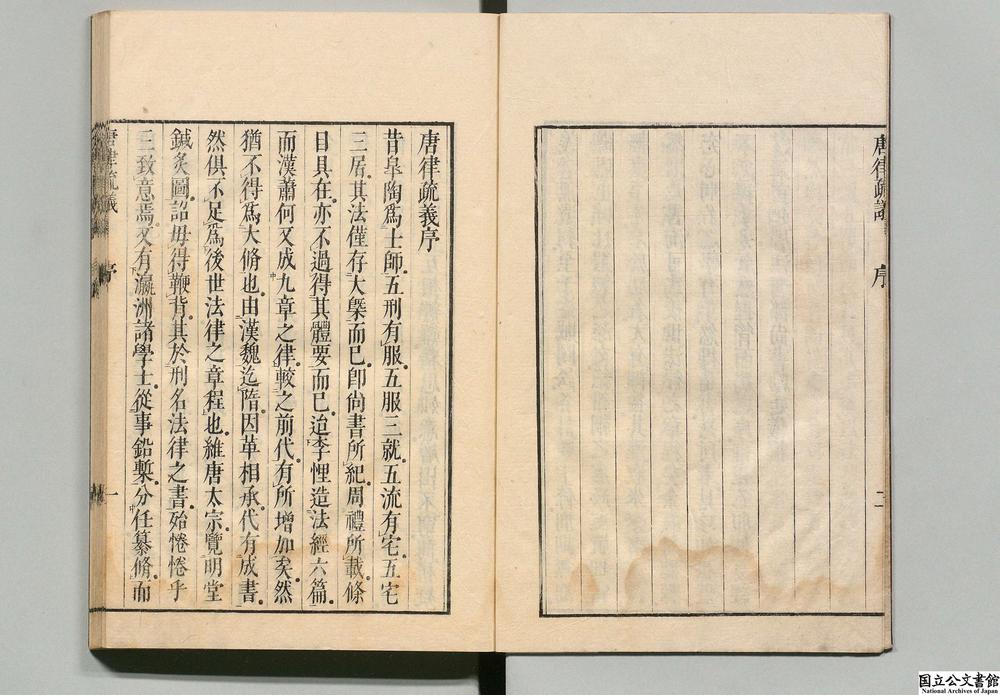 唐律疏議
序
二
唐律疏義序
昔皐陶為士師五刑有服五服三就五流有宅五宅
三居其法僅存大槩而已卽尚書所紀周禮所載條
目具在亦不過得其體要而已迨李悝造法經六篇
而漢蕭何又成九章之律較之前代有所增加矣然
猶不得為大脩也由漢魏迄隋因革相承代有成書
然俱不足為後世法律之章程也維唐太宗覽明堂
鍼灸圖詔毋得鞭背其於刑名法律之書殆惓惓乎
三致意焉又有瀛洲諸學士從事鉛槧分任纂脩而
唐律疏義
序
一
国立公文書館
National Archives of Japan